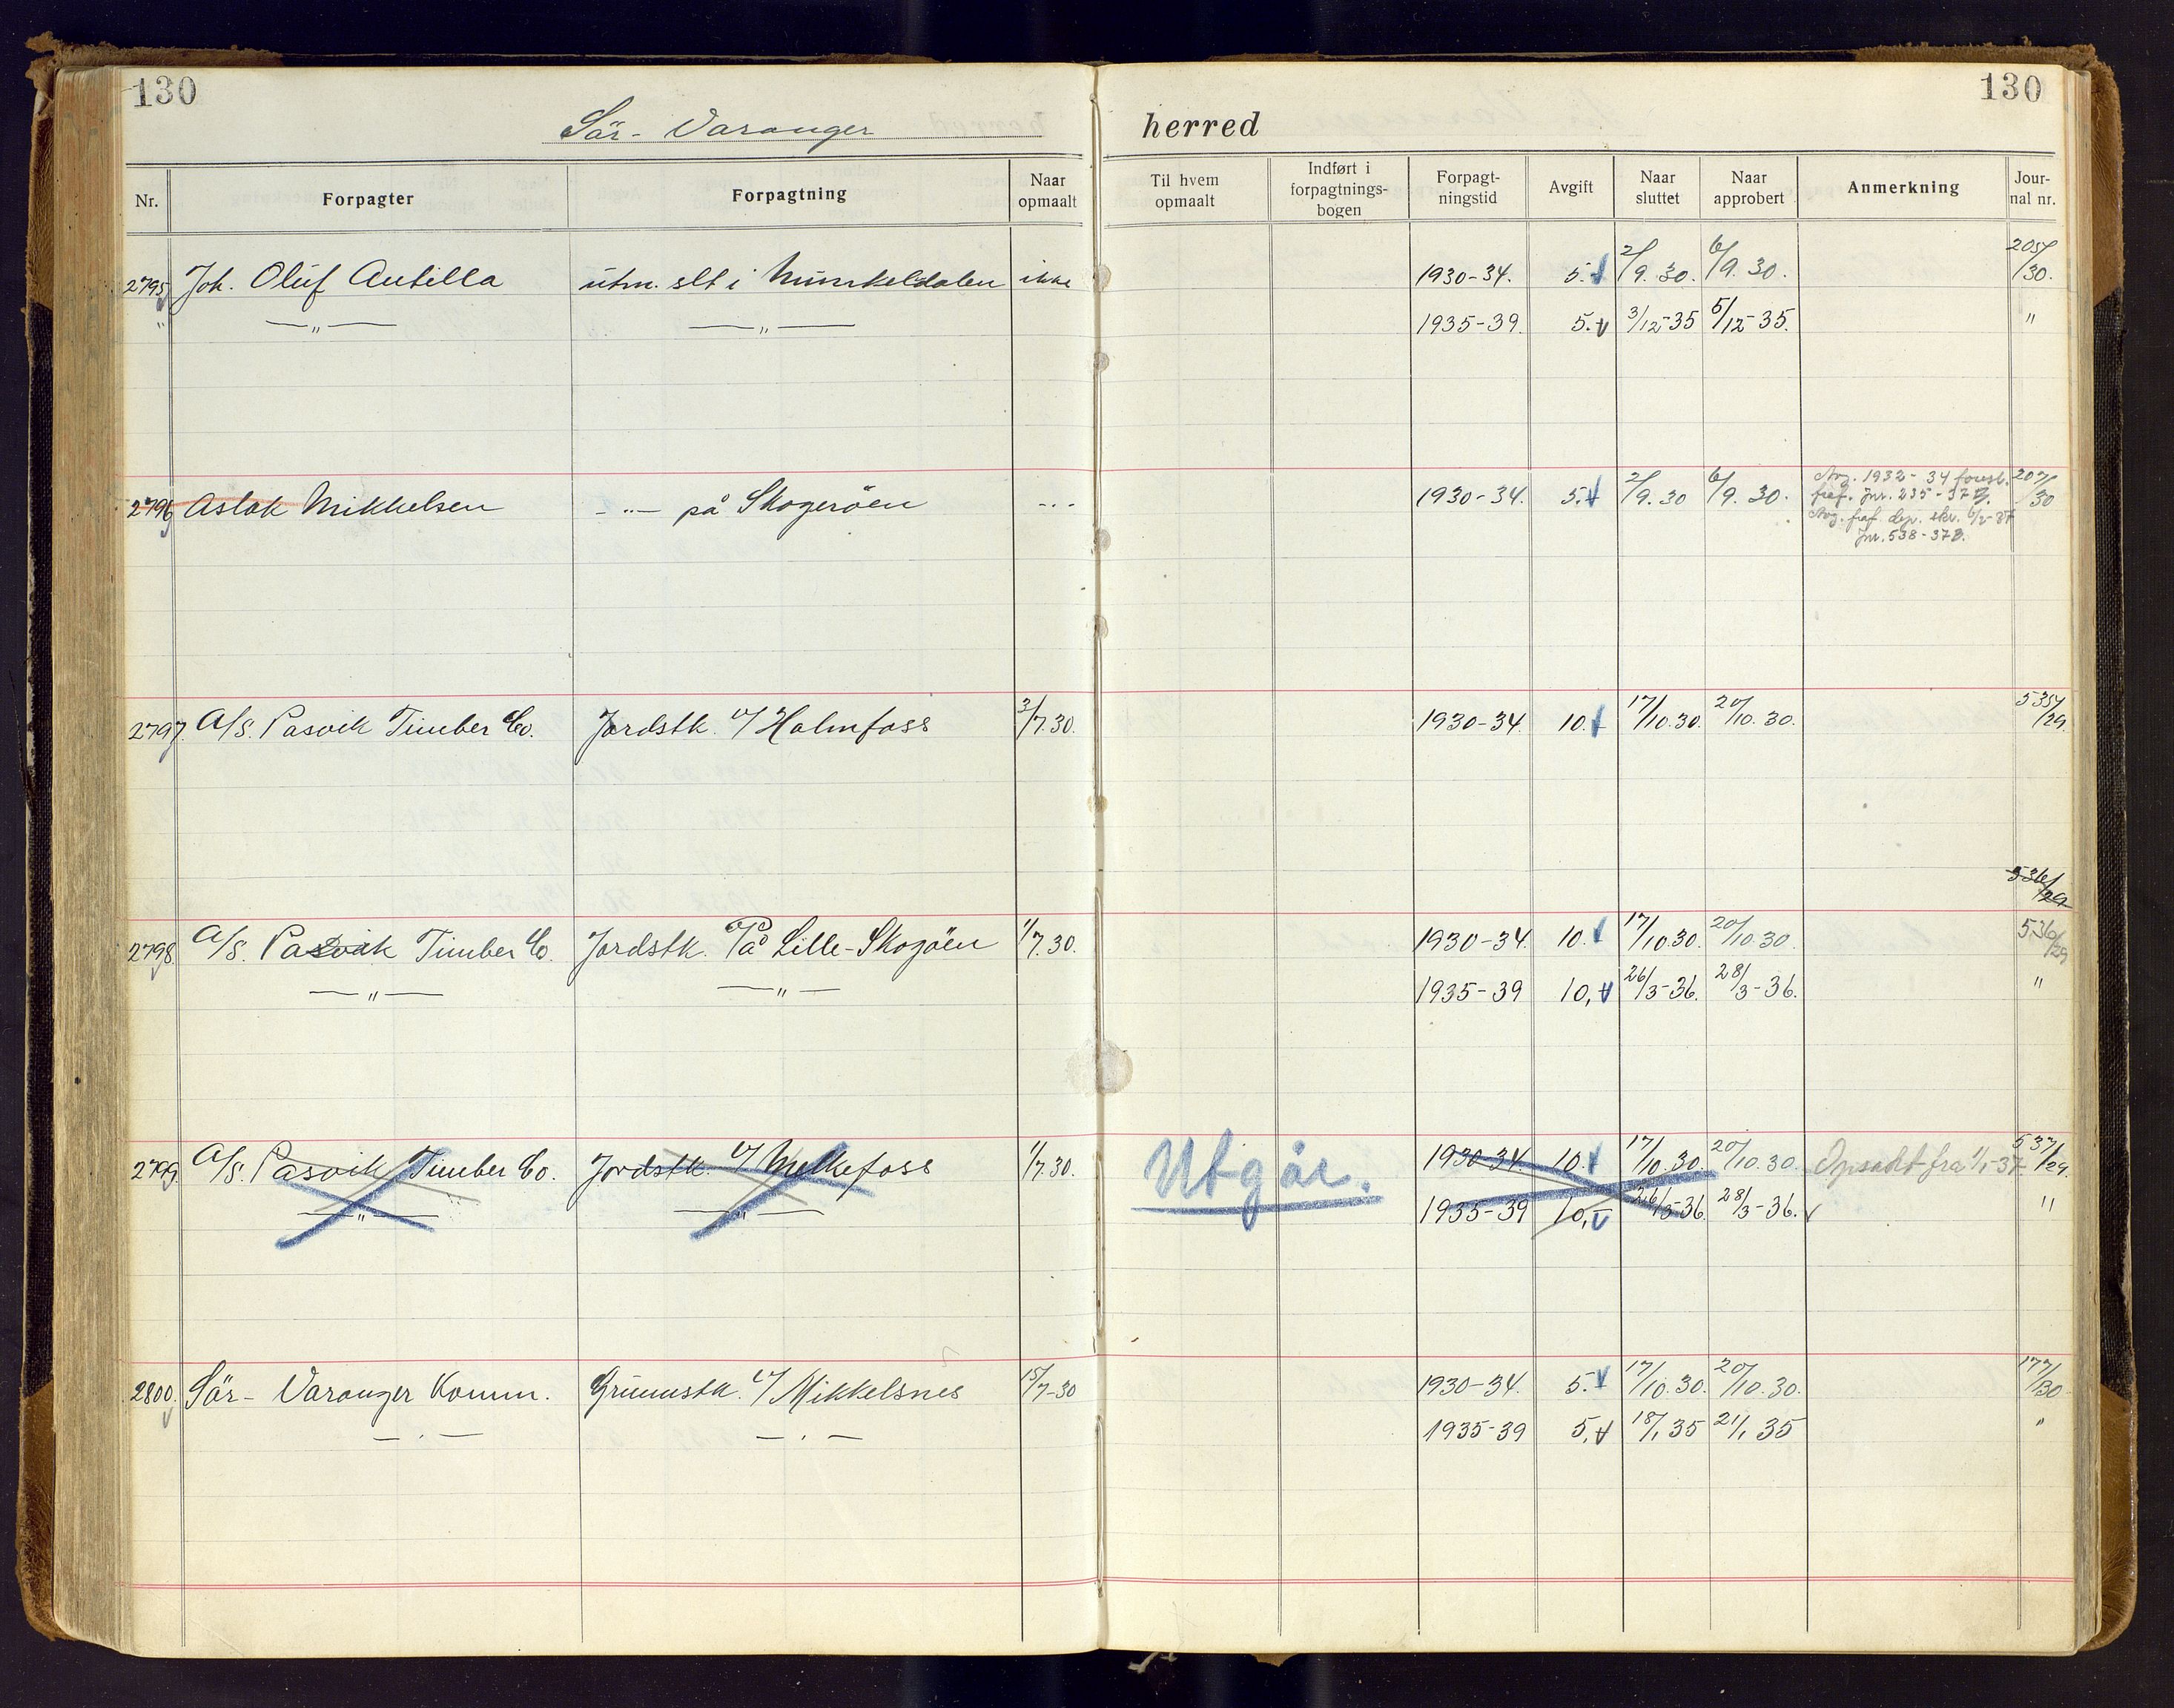 130
130
Sär-Varanger herred
Nr. Forpagter Forpagtning Naar opmaalt Til hvem opmaalt Indført i forpagtnings-bogen Forpagt-ningstid Avgift Naar sluttet Naar approbert Anmerkning Jour-nal nr.
2795 Joh. Oluf Antilla utm. slt i Munkeldalen ikke 1930-34. 5. 2/9. 30. 6/9. 30. 205/30.
" —"— —"— 1935-39. 5. 3/12-35 5/12-35. "
2796 Aslak Mikkelsen -"- på Skogeröen -"- 1930-34. 5. 2/9. 30 6/9. 30. 207/30
1932-34
Jnr. 235-37
dep. skr.
Jnr. 538-37
2797. A/S. Pasvik Timber Co. Jordstk. v/ Holmfoss 3/7.30. 1930-34 10. 17/10.30. 20/10.30. 535/29.
536/29
2798. A/S. Pasvik Timber Co. Jordstk. På Lille-Skogöen 1/7.30. 1930-34. 10. 17/10.30. 20/10.30. 536/29
—"— —"— 1935-39 10, 26/3-36. 28/3-36. "
2799. A/S. Pasvik Timber Co. Jordstk. v/ Melkefoss 1/7.30. Utgår. 1930-34 10. 17/10.30. 20/10.30. Opsakt fra 1/1-37 537/29.
—"— —"— 1935-39 10, 26/3-36 28/3-36. "
2800. Sär-Varanger Komm. Grunnstk. v/ Mikkelsnes 15/7-30 1930-34. 5. 17/10.30. 20/10.30. 177/30
—"— —"— 1935-39 5, 18/1 35 21/1 35 "